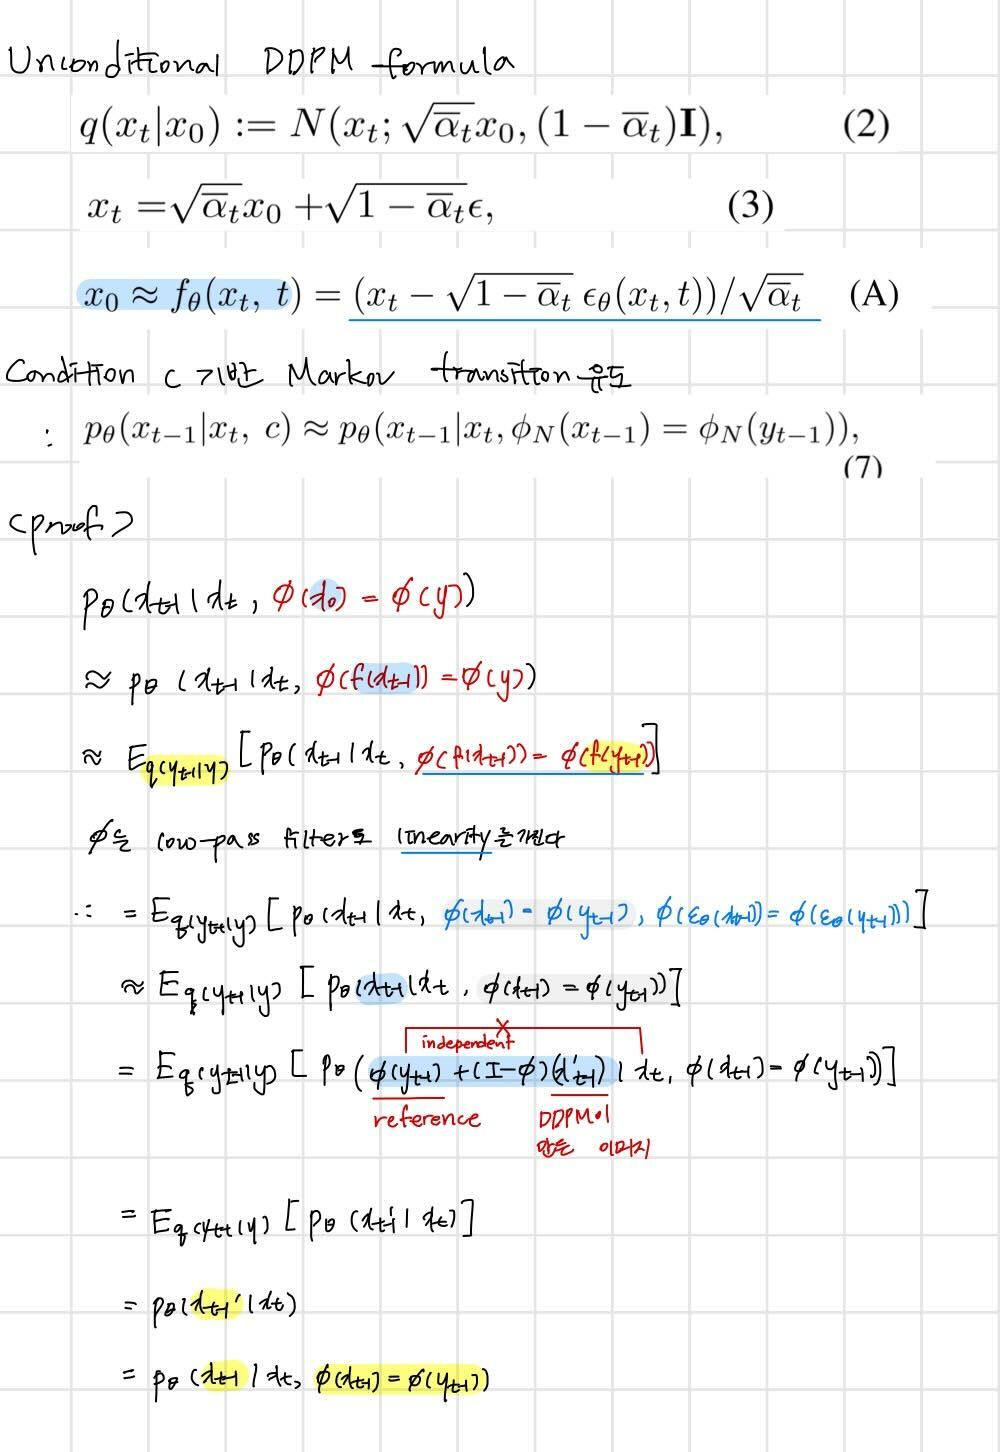 Unconditional DDPM formula
q(x_t|x_0) := N(x_t; √ᾱ_t x_0, (1 − ᾱ_t)I), (2)
x_t = √ᾱ_t x_0 + √(1 − ᾱ_t) ϵ, (3)
x_0 ≈ f_θ(x_t, t) = (x_t − √(1 − ᾱ_t) ϵ_θ(x_t, t))/√ᾱ_t (A)
Condition c 기반 Markov transition 유도
: p_θ(x_{t−1}|x_t, c) ≈ p_θ(x_{t−1}|x_t, ϕ_N(x_{t−1}) = ϕ_N(y_{t−1})),
(7)
<proof>
p_θ(x_{t-1} | x_t, ϕ(x_0) = ϕ(y))
≈ p_θ(x_{t-1} | x_t, ϕ(f(x_{t-1})) = ϕ(y))
≈ E_{q(y_{t-1}|y)} [p_θ(x_{t-1} | x_t, ϕ(f(x_{t-1})) = ϕ(f(y_{t-1}))]
ϕ는 low-pass filter로 linearity를 가진다
∴ = E_{q(y_{t-1}|y)} [p_θ(x_{t-1} | x_t, ϕ(x_{t-1}) = ϕ(y_{t-1}), ϕ(ε_θ(x_{t-1})) = ϕ(ε_θ(y_{t-1}))]
≈ E_{q(y_{t-1}|y)} [p_θ(x_{t-1} | x_t, ϕ(x_{t-1}) = ϕ(y_{t-1}))]
independent
= E_{q(y_{t-1}|y)} [p_θ(ϕ(y_{t-1}) + (I-ϕ)(x'_{t-1}) | x_t, ϕ(x_{t-1}) = ϕ(y_{t-1}))]
reference DDPM이
만든 이미지
= E_{q(y_{t-1}|y)} [p_θ(x'_{t-1} | x_t)]
= p_θ(x_{t-1}' | x_t)
= p_θ(x_{t-1} | x_t, ϕ(x_{t-1}) = ϕ(y_{t-1}))